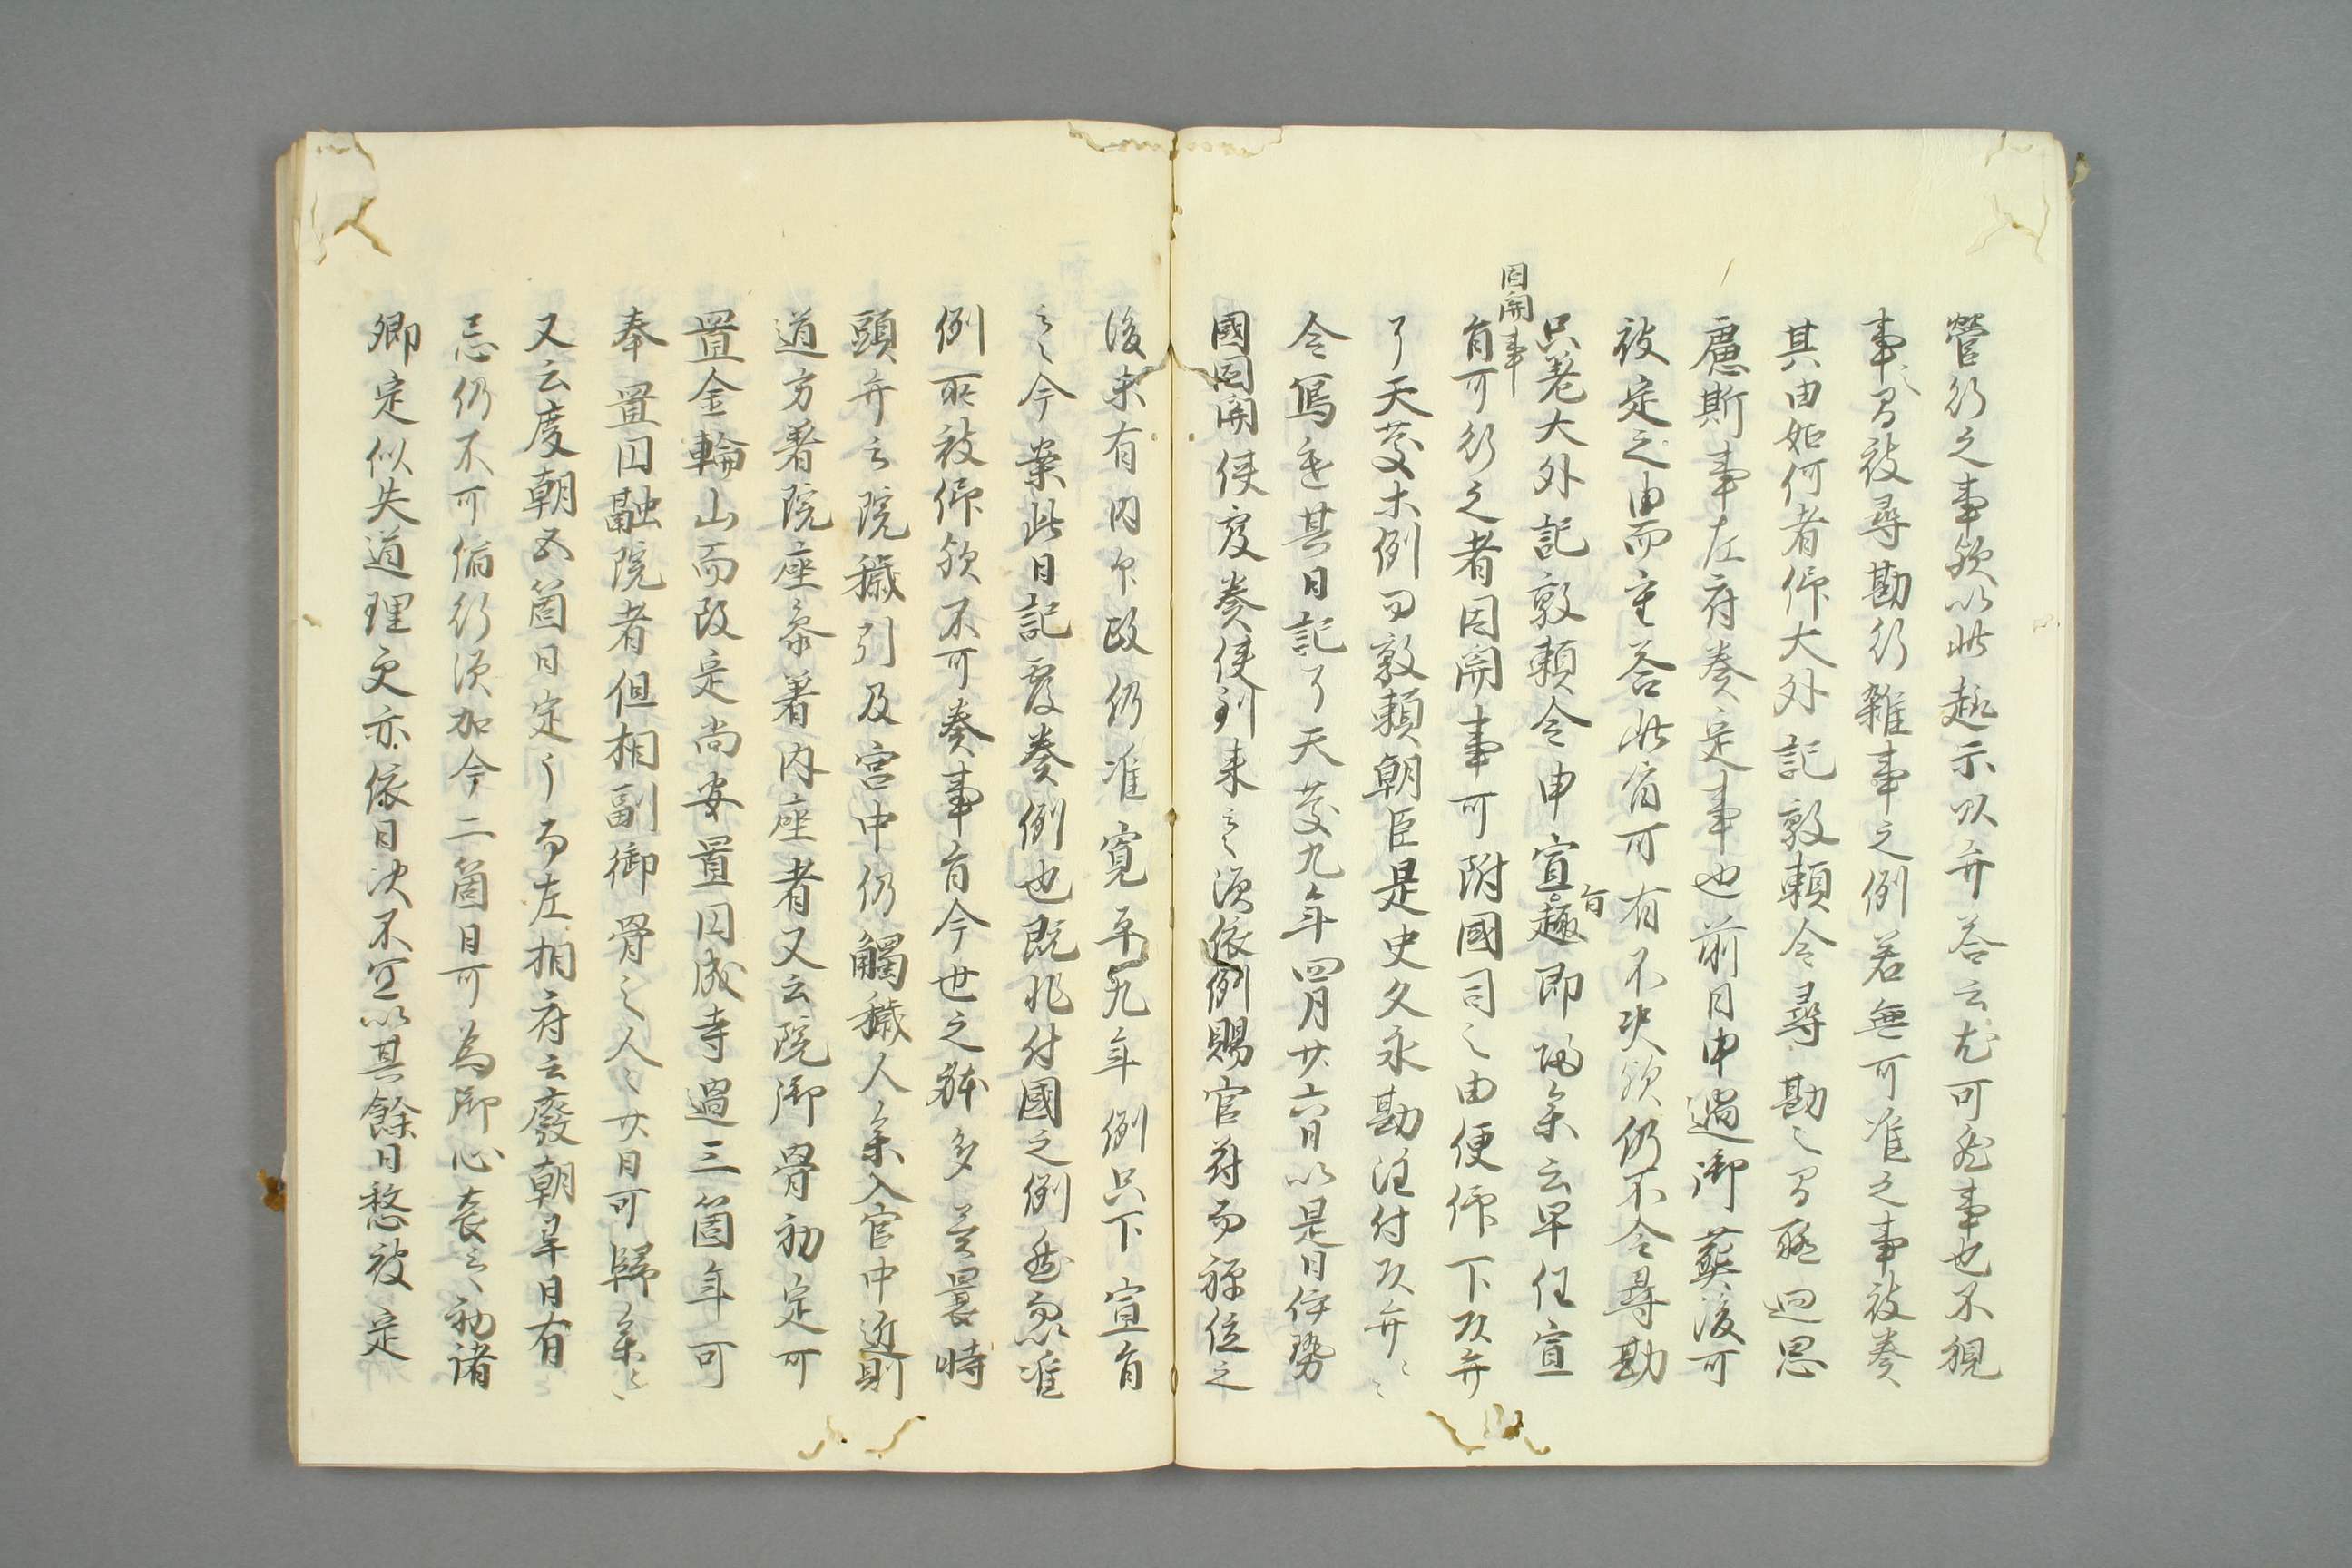 營行之事欤以此趣示以弁答云尤可然事也不視
事之間被尋勘行雜事之例若無可准之事被奏
其由如何者仰大外記敦頼令尋勘之間廻思
慮斯事左府奏定事也前日申過御葬後可
被定之由而重答此旨可有不決欤仍不令尋勘
只差大外記敦頼令申宣旨趣即帰来云早任宣
固関事
旨可行之者固関事可附國司之由便仰下以弁
了天慶等例
敦頼朝臣是史久永勘注付以弁々々
令寫進其日記了天慶九年四月廿六日以是日伊勢
國固関使覆奏使到来云々須依例賜官符而禅位之
後未有内印政仍准寛平九年例只下宣旨
云々今案此日記覆奏例也既非付國之例然而准
例所被仰欤不可奏事旨今世之躰多
異曩時
頭弁云院穢引及宮中仍觸穢人参入官中近則
道方着院座参着内座者又云院御骨初定可
置金輪山而改定尚安置円成寺過三箇年可
奉置円融院者但相副御骨之人々廿日可歸参云々
又云廢朝五箇日定了而左相府云廢朝早日有
忌仍不可偏行須加今二箇日可為御心喪云々初諸
卿定似失道理更亦依日次不宜以其餘日愁被定